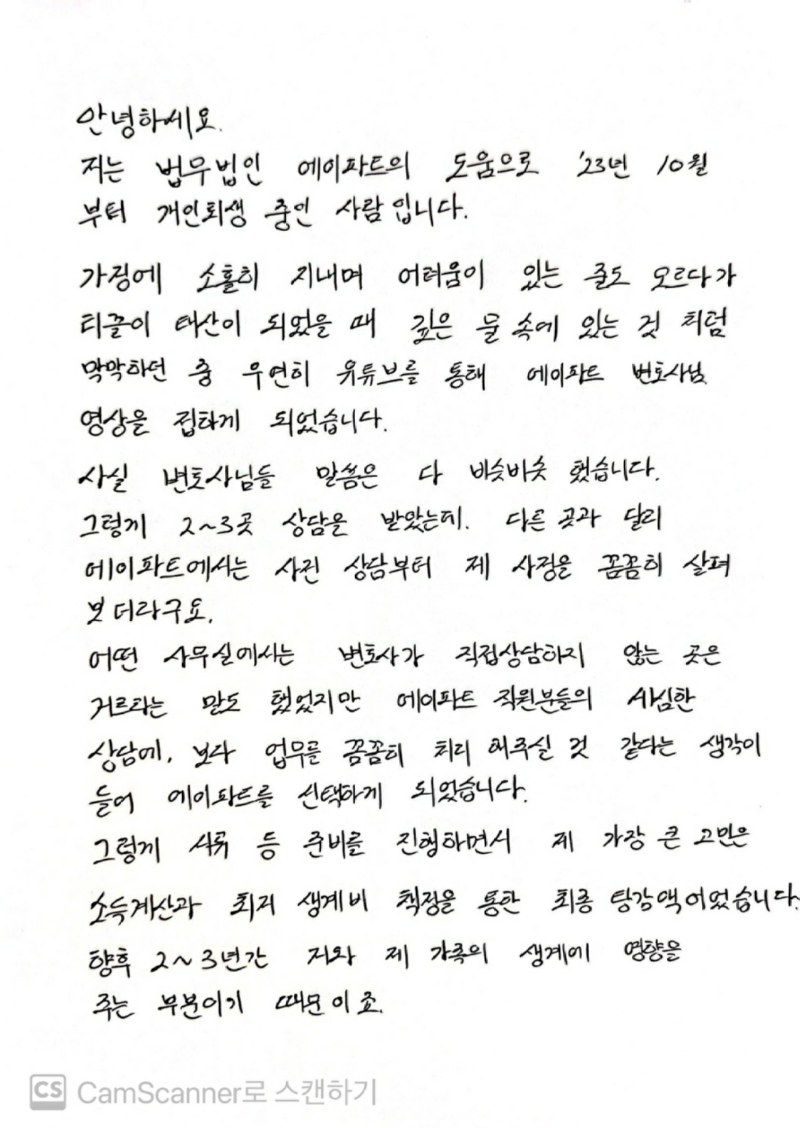 안녕하세요.
저는 법무법인 에이파트의 도움으로 '23년 10월
부터 개인회생 중인 사람입니다.
가정에 소홀히 지내며 어려움이 있는 줄도 모르다가
티끌이 태산이 되었을 때 깊은 물 속에 있는 것 처럼
막막하던 중 우연히 유튜브를 통해 에이파트 변호사님
영상을 접하게 되었습니다.
사실 변호사님들 말씀은 다 비슷비슷 했습니다.
그렇게 2~3곳 상담을 받았는데. 다른 곳과 달리
에이파트에서는 사전 상담부터 제 사정을 꼼꼼히 살펴
보더라구요.
어떤 사무실에서는 변호사가 직접상담하지 않는 곳은
거르라는 말도 했었지만 에이파트 직원분들의 세심한
상담에, 보다 업무를 꼼꼼히 처리 해주실 것 같다는 생각이
들어 에이파트를 선택하게 되었습니다.
그렇게 서류 등 준비를 진행하면서 제 가장 큰 고민은
소득계산과 최저 생계비 책정을 통한 최종 탕감액이었습니다.
향후 2~3년간 저와 제 가족의 생계에 영향을
주는 부분이기 때문이죠.
CS CamScanner로 스캔하기